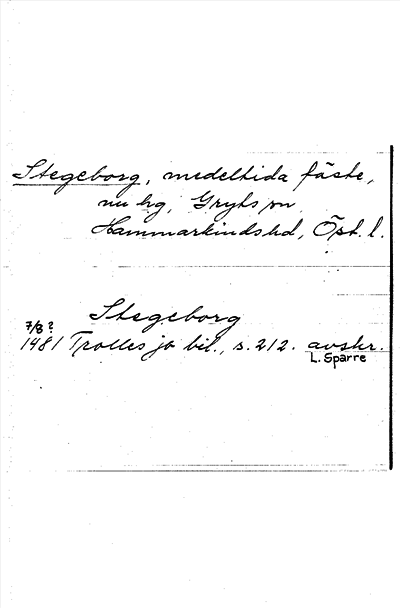 Stegeborg, medeltida fäste,
nu hg, Gryts sn
Hammarkinds hd, Öst. l.
Stegeborg
7/8 ?
1481 Trolles jb bil., s. 212. avskr.
L. Sparre